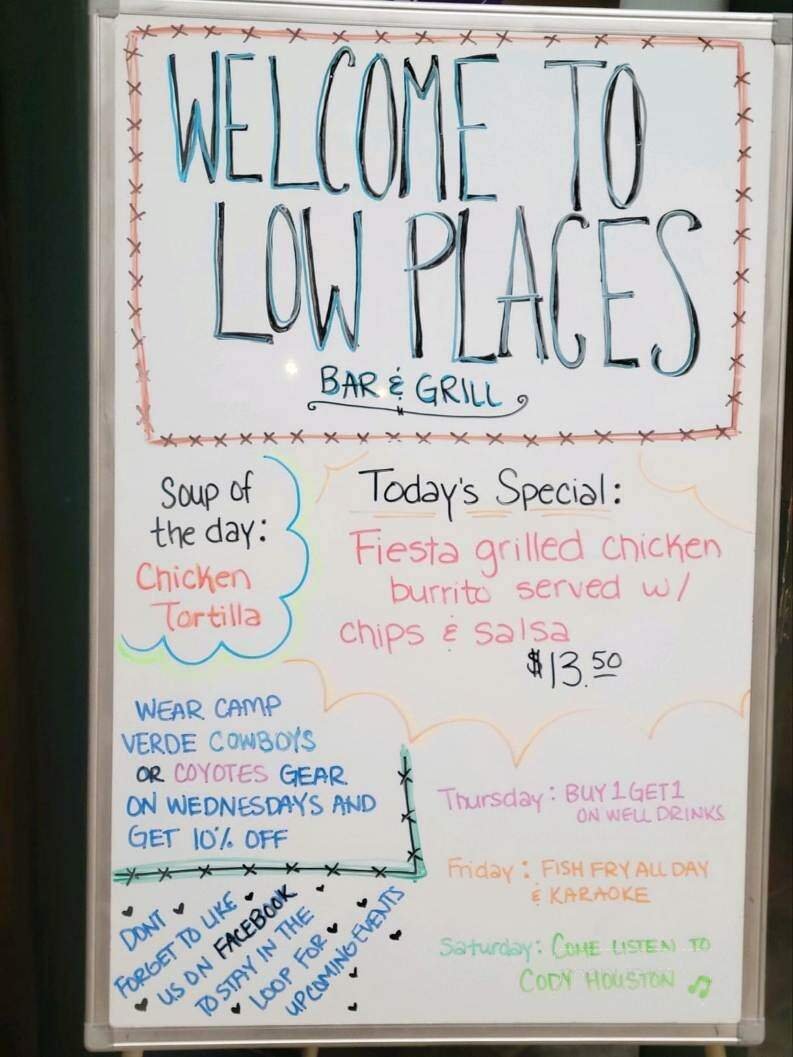 WELCOME TO
LOW PLACES
BAR & GRILL
Soup of
the day:
Chicken
Tortilla
Today's Special:
Fiesta grilled chicken
burrito served w/
chips & salsa
$13.50
WEAR CAMP
VERDE COWBOYS
OR COYOTES GEAR
ON WEDNESDAYS AND
GET 10% OFF
DONT
FORGET TO LIKE
US ON FACEBOOK
TO STAY IN THE
LOOP FOR
UPCOMING EVENTS
Thursday: BUY 1 GET 1
ON WELL DRINKS
Friday: FISH FRY ALL DAY
& KARAOKE
Saturday: COME LISTEN TO
CODY HOUSTON